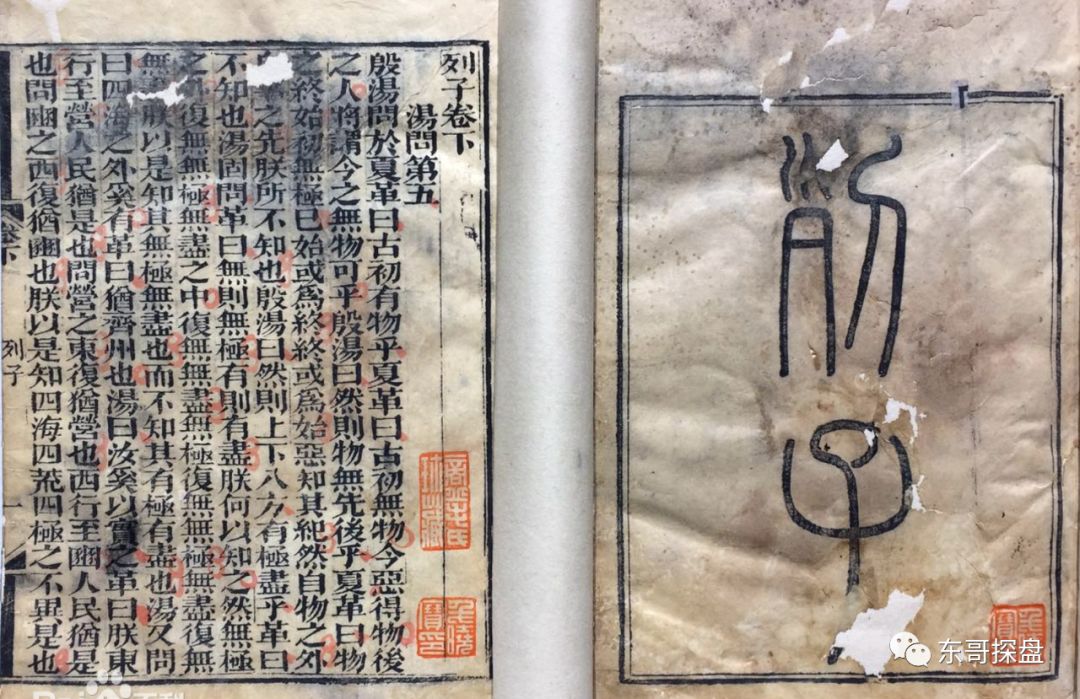 列子
列子卷下
湯問第五
殷湯問於夏革曰古初有物乎夏革曰古初無物今惡得物後
之人將謂今之無物可乎殷湯曰然則物無先後乎夏革曰物
之終始初無極已始或爲終終或爲始惡知其紀然自物之外
之先朕所不知也殷湯曰然則上下八方有極盡乎革曰
不知也湯固問革曰無則無極有則有盡朕何以知之然無極
之外復無無極無盡之中復無無盡無極復無無極無盡復無
無盡朕以是知其無極無盡也而不知其有極有盡也湯又問
曰四海之外奚有革曰猶齊州也湯曰汝奚以實之革曰朕東
行至營人民猶是也問營之東復猶營也西行至豳人民猶是
也問豳之西復猶豳也朕以是知四海四荒四極之不異是也
卷下
列子
一
东哥探盘